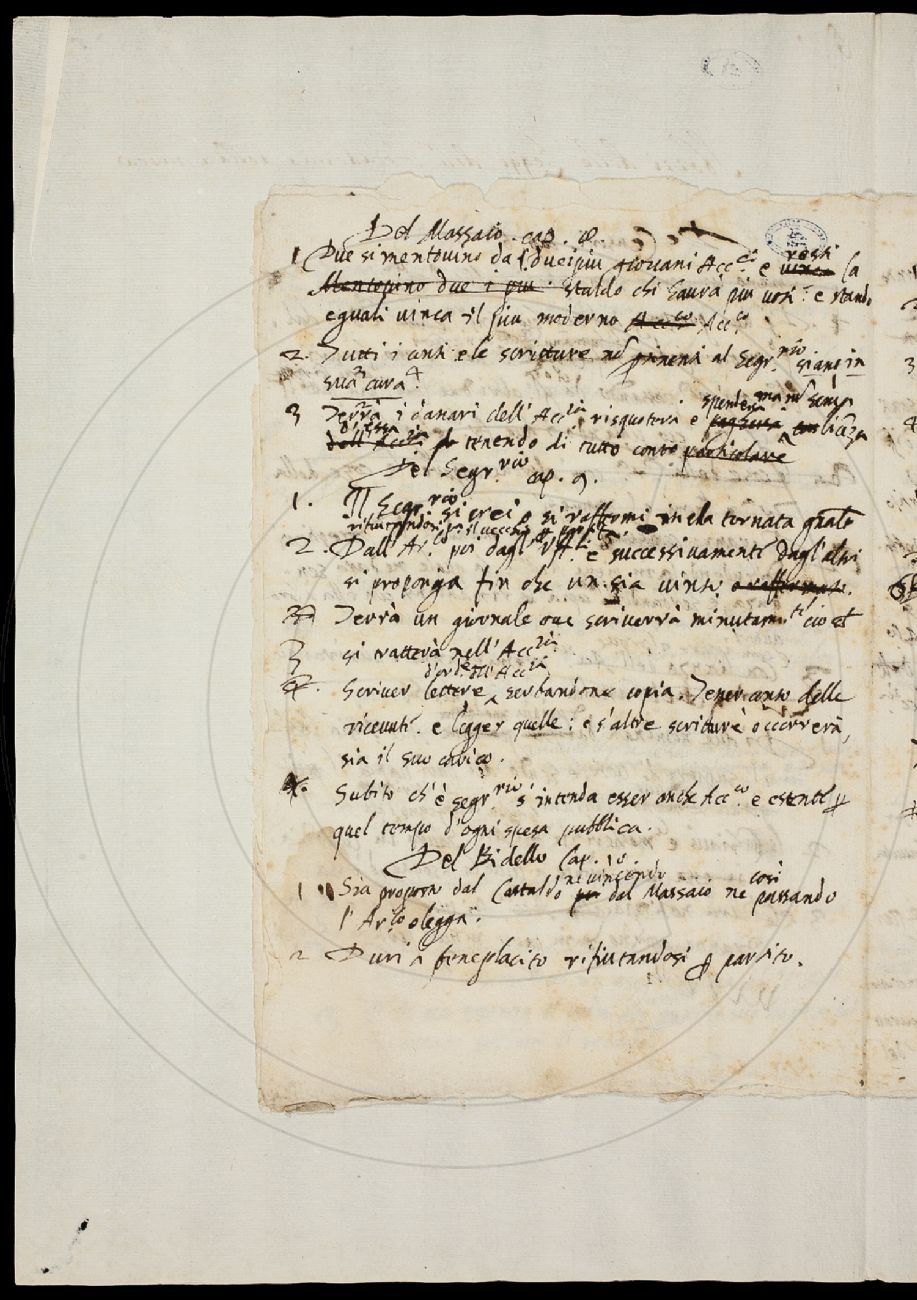 Del Massaio. cap. 8.
1 Due si mentovino da i due piu giovani Acc.ci e resti vinca la
Mentovino due i piu. staldo chi haura piu voti: e stando
eguali vinca il piu moderno Acc.co Acc.co
2. Tutti i conti e le scritture pertinenti al Segr.rio siano in
sua cura.
3 Terrà i danari dell' Acc.ia risquoterà e spenderà ma senza licenza
d'essa dell' Acc.ia tenendo di tutto conto particolare
Del Segr.rio cap. 9.
1. Il Segr.rio si crei o si raffermi nela tornata gnale
rifiutandosi il vecchio
2. Dall' Ar.lo poi dagl' Uff.li e successivamente dagl' altri
si proponga fin che un sia vinto o raffermato.
Terrà un giornale ove scriverrà minutam.te ciò
3 si tratterà nell' Acc.ia
d'ord.e dell' Acc.ia
4. Scriver lettere serbandone copia. Tener conto delle
ricevute. e legger quelle: e s'altre scritture occorrerà,
sia il suo carico.
Subito ch' è Segr.rio s' intenda esser anche Acc.co e esente
quel tempo d'ogni spesa pubblica.
Del Bidello Cap. 10.
1 Sia proposto dal Castaldo ne vincendo dal Massaio ne così passando
l' Ar.lo elegga.
2 Duri a beneplacito rifiutandosi partito.